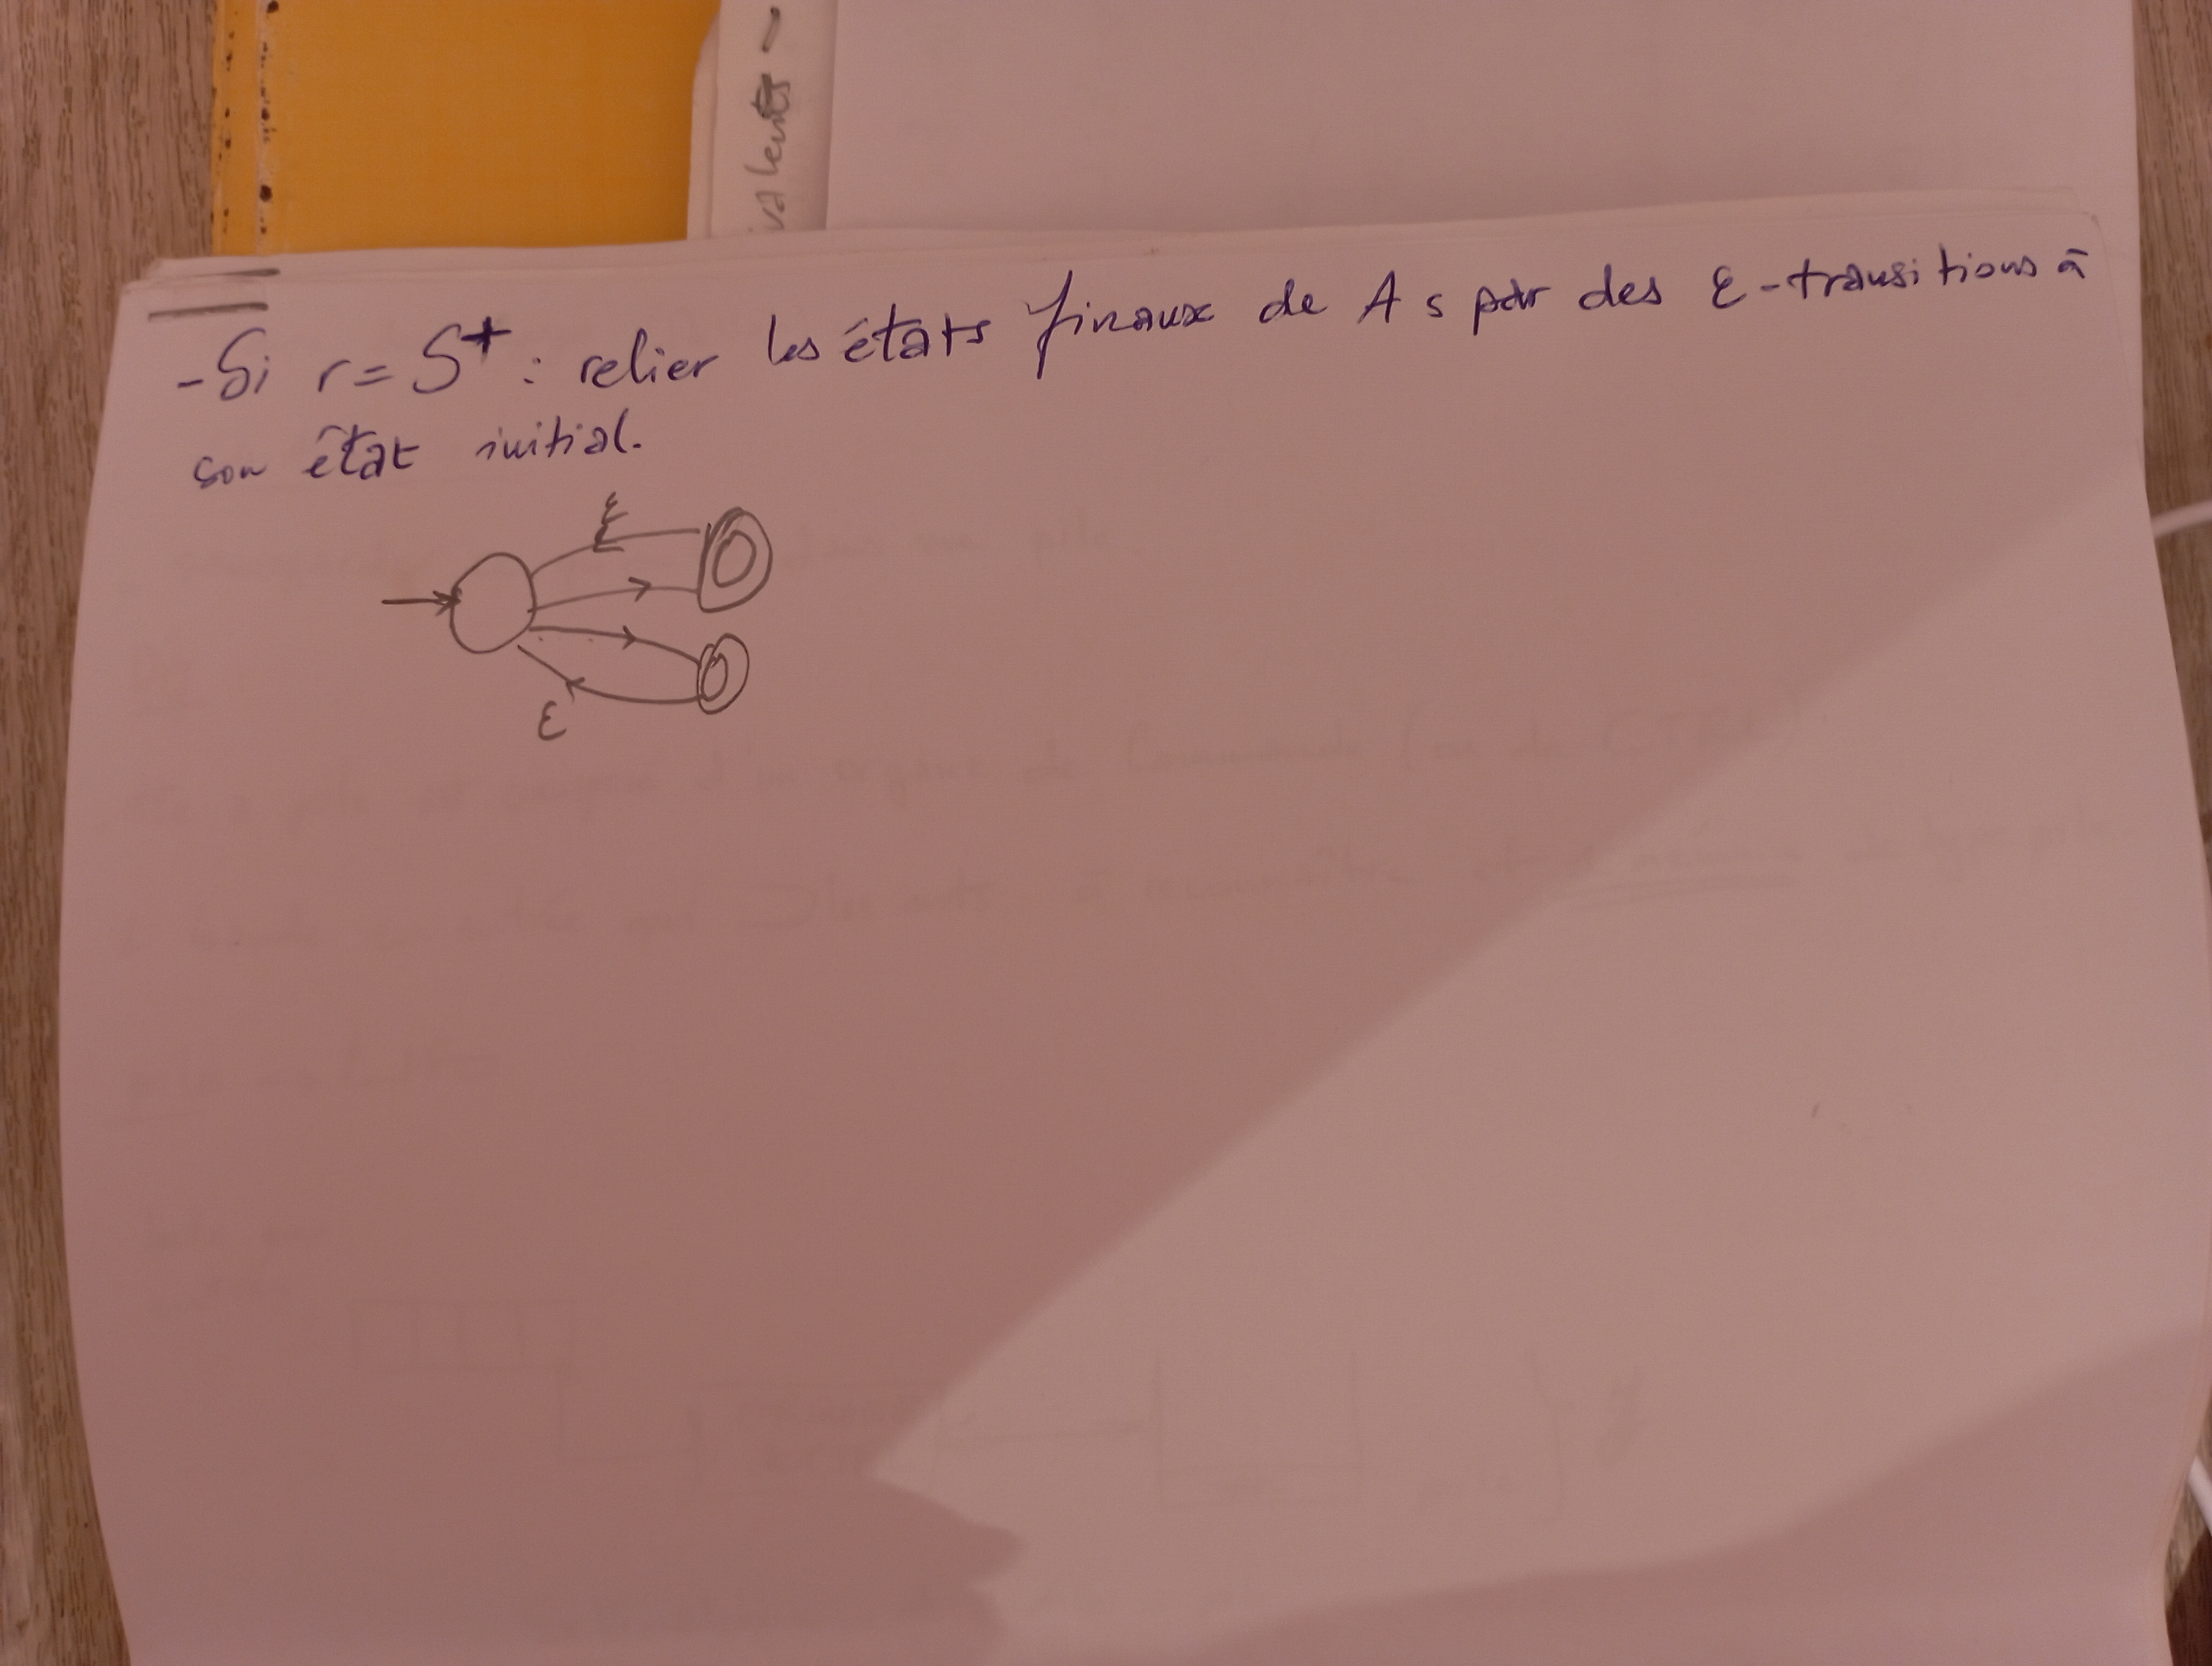 - Si r = S+ : relier les états finaux de As par des ε-transitions à
son état initial.
ε
ε
valents -